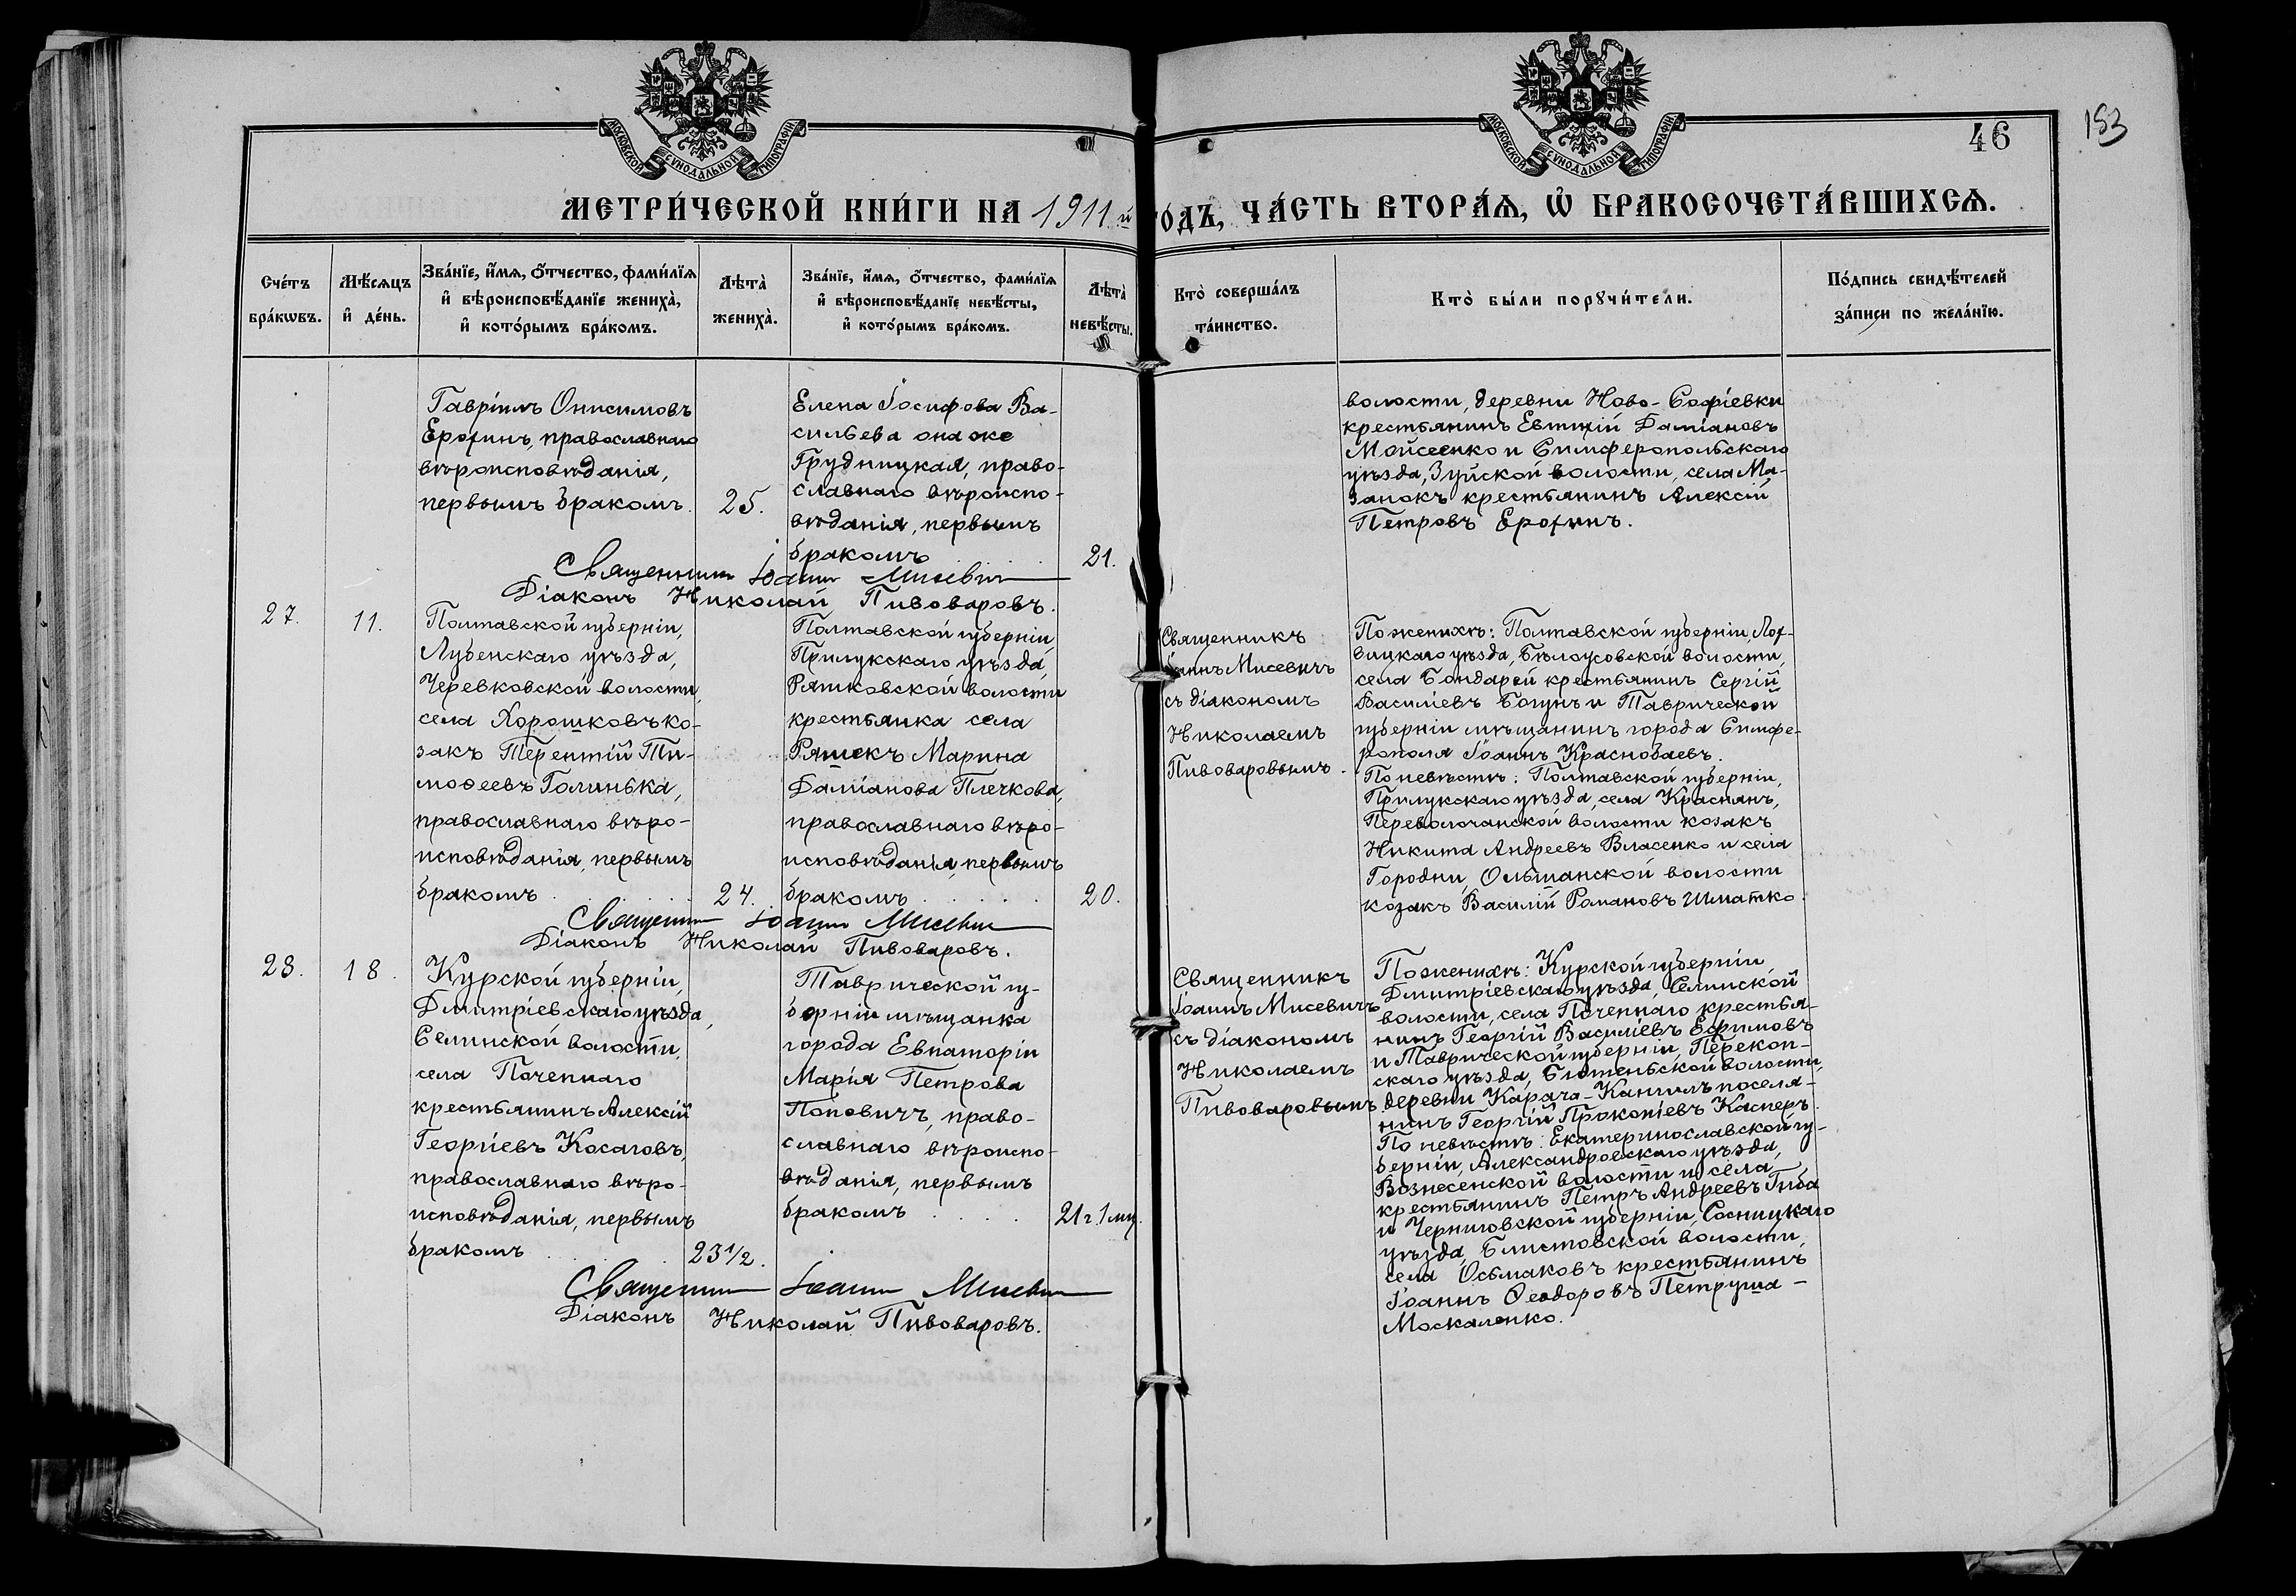 МОСКОВСКОЙ СѴНОДАЛЬНОЙ ТИПОГРАФІИ
МОСКОВСКОЙ СѴНОДАЛЬНОЙ ТИПОГРАФІИ
46
153
МЕТРИ́ЧЕСКОЙ КНИ́ГИ НА 1911й ГОДЪ, ЧА́СТЬ ВТОРА́Я, Ѡ БРАКОСОЧЕТА́ВШИХСЯ.
Сче́тъ
бра́кѡвъ.
Мѣ́сяцъ
и де́нь.
Зва́нїе, и́мя, ѻ́тчество, фами́лїя
и вѣроисповѣ́данїе жениха̀,
и кото́рымъ бра́комъ.
Лѣта̀
жениха̀.
Зва́нїе, и́мя, ѻ́тчество, фами́лїя
и вѣроисповѣ́данїе невѣ́сты,
и кото́рымъ бра́комъ.
Лѣта̀
невѣ́сты.
Кто̀ соверша́лъ
та́инство.
Кто̀ бы́ли порꙋчи́тели.
По́дпись свидѣ́телей
за́писи по жела́нїю.
Гавріилъ Онисимовъ
Ерохинъ, православнаго
вѣроисповѣданія,
первымъ бракомъ.
25.
Елена Іосифова Ва-
сильева она же
Грудницкая, право-
славнаго вѣроиспо-
вѣданія, первымъ
бракомъ
21.
волости, деревни Ново-Софіевки
крестьянинъ Евтихій Даміановъ
Мойсеенко и Симферопольскаго
уѣзда, Зуйской волости, села Ма-
занокъ крестьянинъ Алексій
Петровъ Ерохинъ.
Священникъ Іоаннъ Мисевичъ
Діаконъ Николай Пивоваровъ.
27.
11.
Полтавской губерніи,
Лубенскаго уѣзда,
Черевковской волости,
села Хорошковъ ко-
закъ Терентій Ти-
моѳеевъ Голинька,
православнаго вѣро-
исповѣданія, первымъ
бракомъ
24.
Полтавской губерніи,
Прилукскаго уѣзда,
Ряшковской волости
крестьянка села
Ряшекъ Марина
Даміанова Плечкова,
православнаго вѣро-
исповѣданія, первымъ
бракомъ
20.
Священникъ
Іоаннъ Мисевичъ
съ діакономъ
Николаемъ
Пивоваровымъ.
По женихѣ: Полтавской губерніи, Лох-
вицкаго уѣзда, Бѣлоусовской волости,
села Бондарей крестьянинъ Сергій
Василіевъ Богунъ и Таврической
губерніи мѣщанинъ города Симфе-
рополя Іоаннъ Краснобаевъ.
По невѣстѣ: Полтавской губерніи,
Прилукскаго уѣзда, села Краснянъ,
Переволочанской волости козакъ
Никита Андреевъ Власенко и села
Городни, Ольшанской волости
козакъ Василій Романовъ Шматко.
Священникъ Іоаннъ Мисевичъ
Діаконъ Николай Пивоваровъ.
28.
18.
Курской губерніи,
Дмитріевскаго уѣзда,
Селинской волости,
села Поченнаго
крестьянинъ Алексій
Георгіевъ Косаговъ,
православнаго вѣро-
исповѣданія, первымъ
бракомъ
23½.
Таврической гу-
берніи мѣщанка
города Евпаторіи
Марія Петрова
Поповичъ, право-
славнаго вѣроиспо-
вѣданія, первымъ
бракомъ
21 г. 1 мц.
Священникъ
Іоаннъ Мисевичъ
съ діакономъ
Николаемъ
Пивоваровымъ
По женихѣ: Курской губерніи,
Дмитріевскаго уѣзда, Селинской
волости, села Поченнаго крестья-
нинъ Георгій Василіевъ Ефимовъ
и Таврической губерніи, Перекоп-
скаго уѣзда, Бютеньской волости,
деревни Карача-Кангилъ поселя-
нинъ Георгій Прокопіевъ Касперъ.
По невѣстѣ: Екатеринославской гу-
берніи, Александровскаго уѣзда,
Вознесенской волости и села
крестьянинъ Петръ Андреевъ Гиба
и Черниговской губерніи, Сосницкаго
уѣзда, Блистовской волости,
села Осьмаковъ крестьянинъ
Іоаннъ Ѳеодоровъ Петруша-
Москаленко.
Священникъ Іоаннъ Мисевичъ
Діаконъ Николай Пивоваровъ.